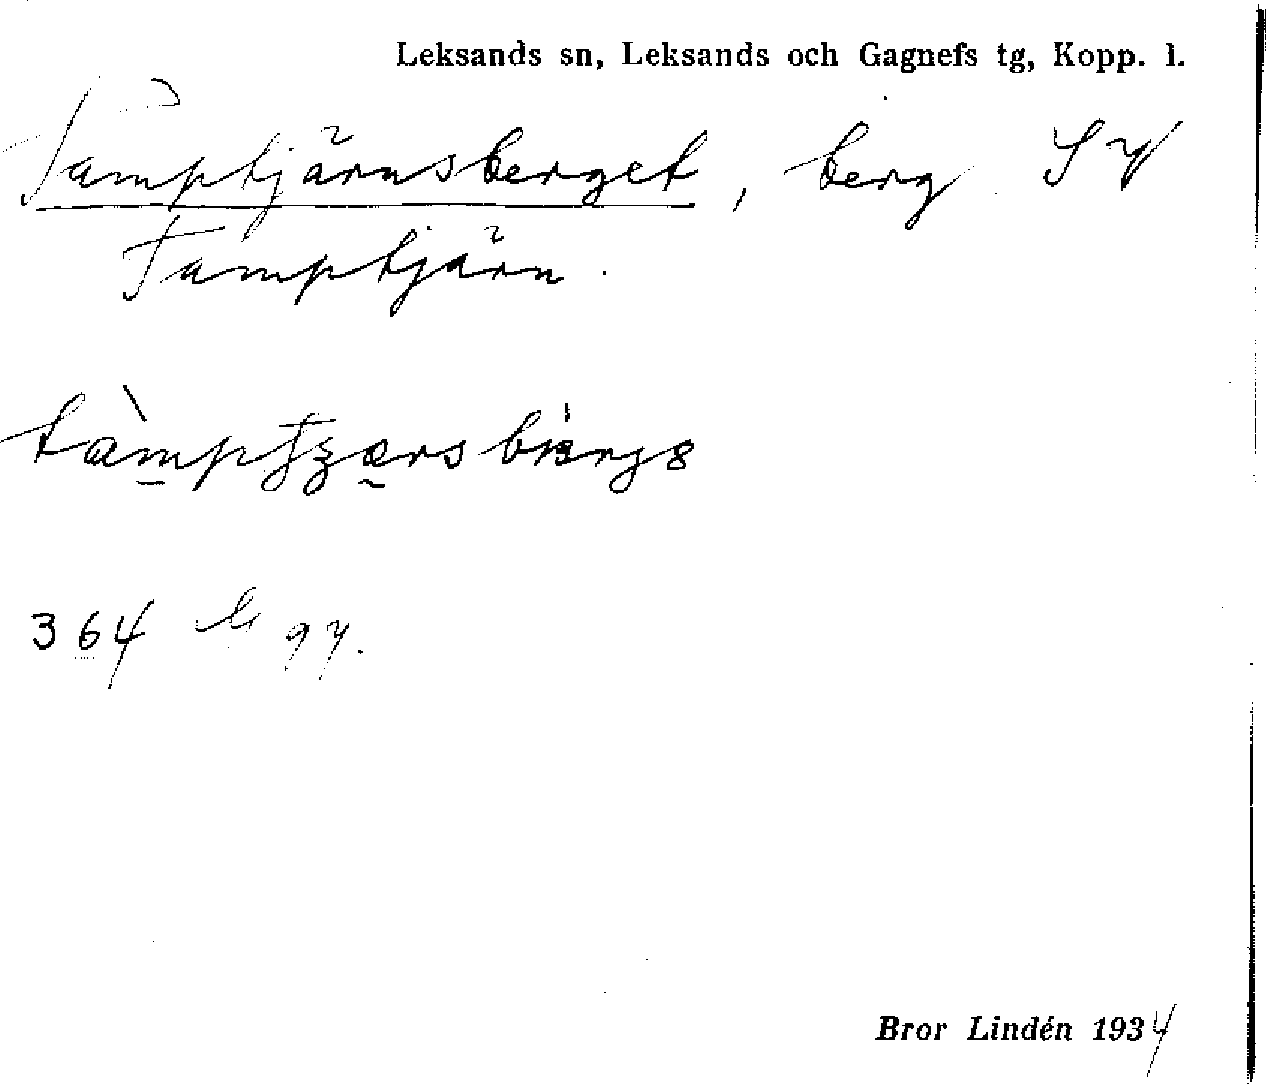 Leksands sn, Leksands och Gagnefs tg, Kopp. l.
Tamptjärnsberget, berg SV
Tamptjärn.
364
97.
Bror Lindén 1934